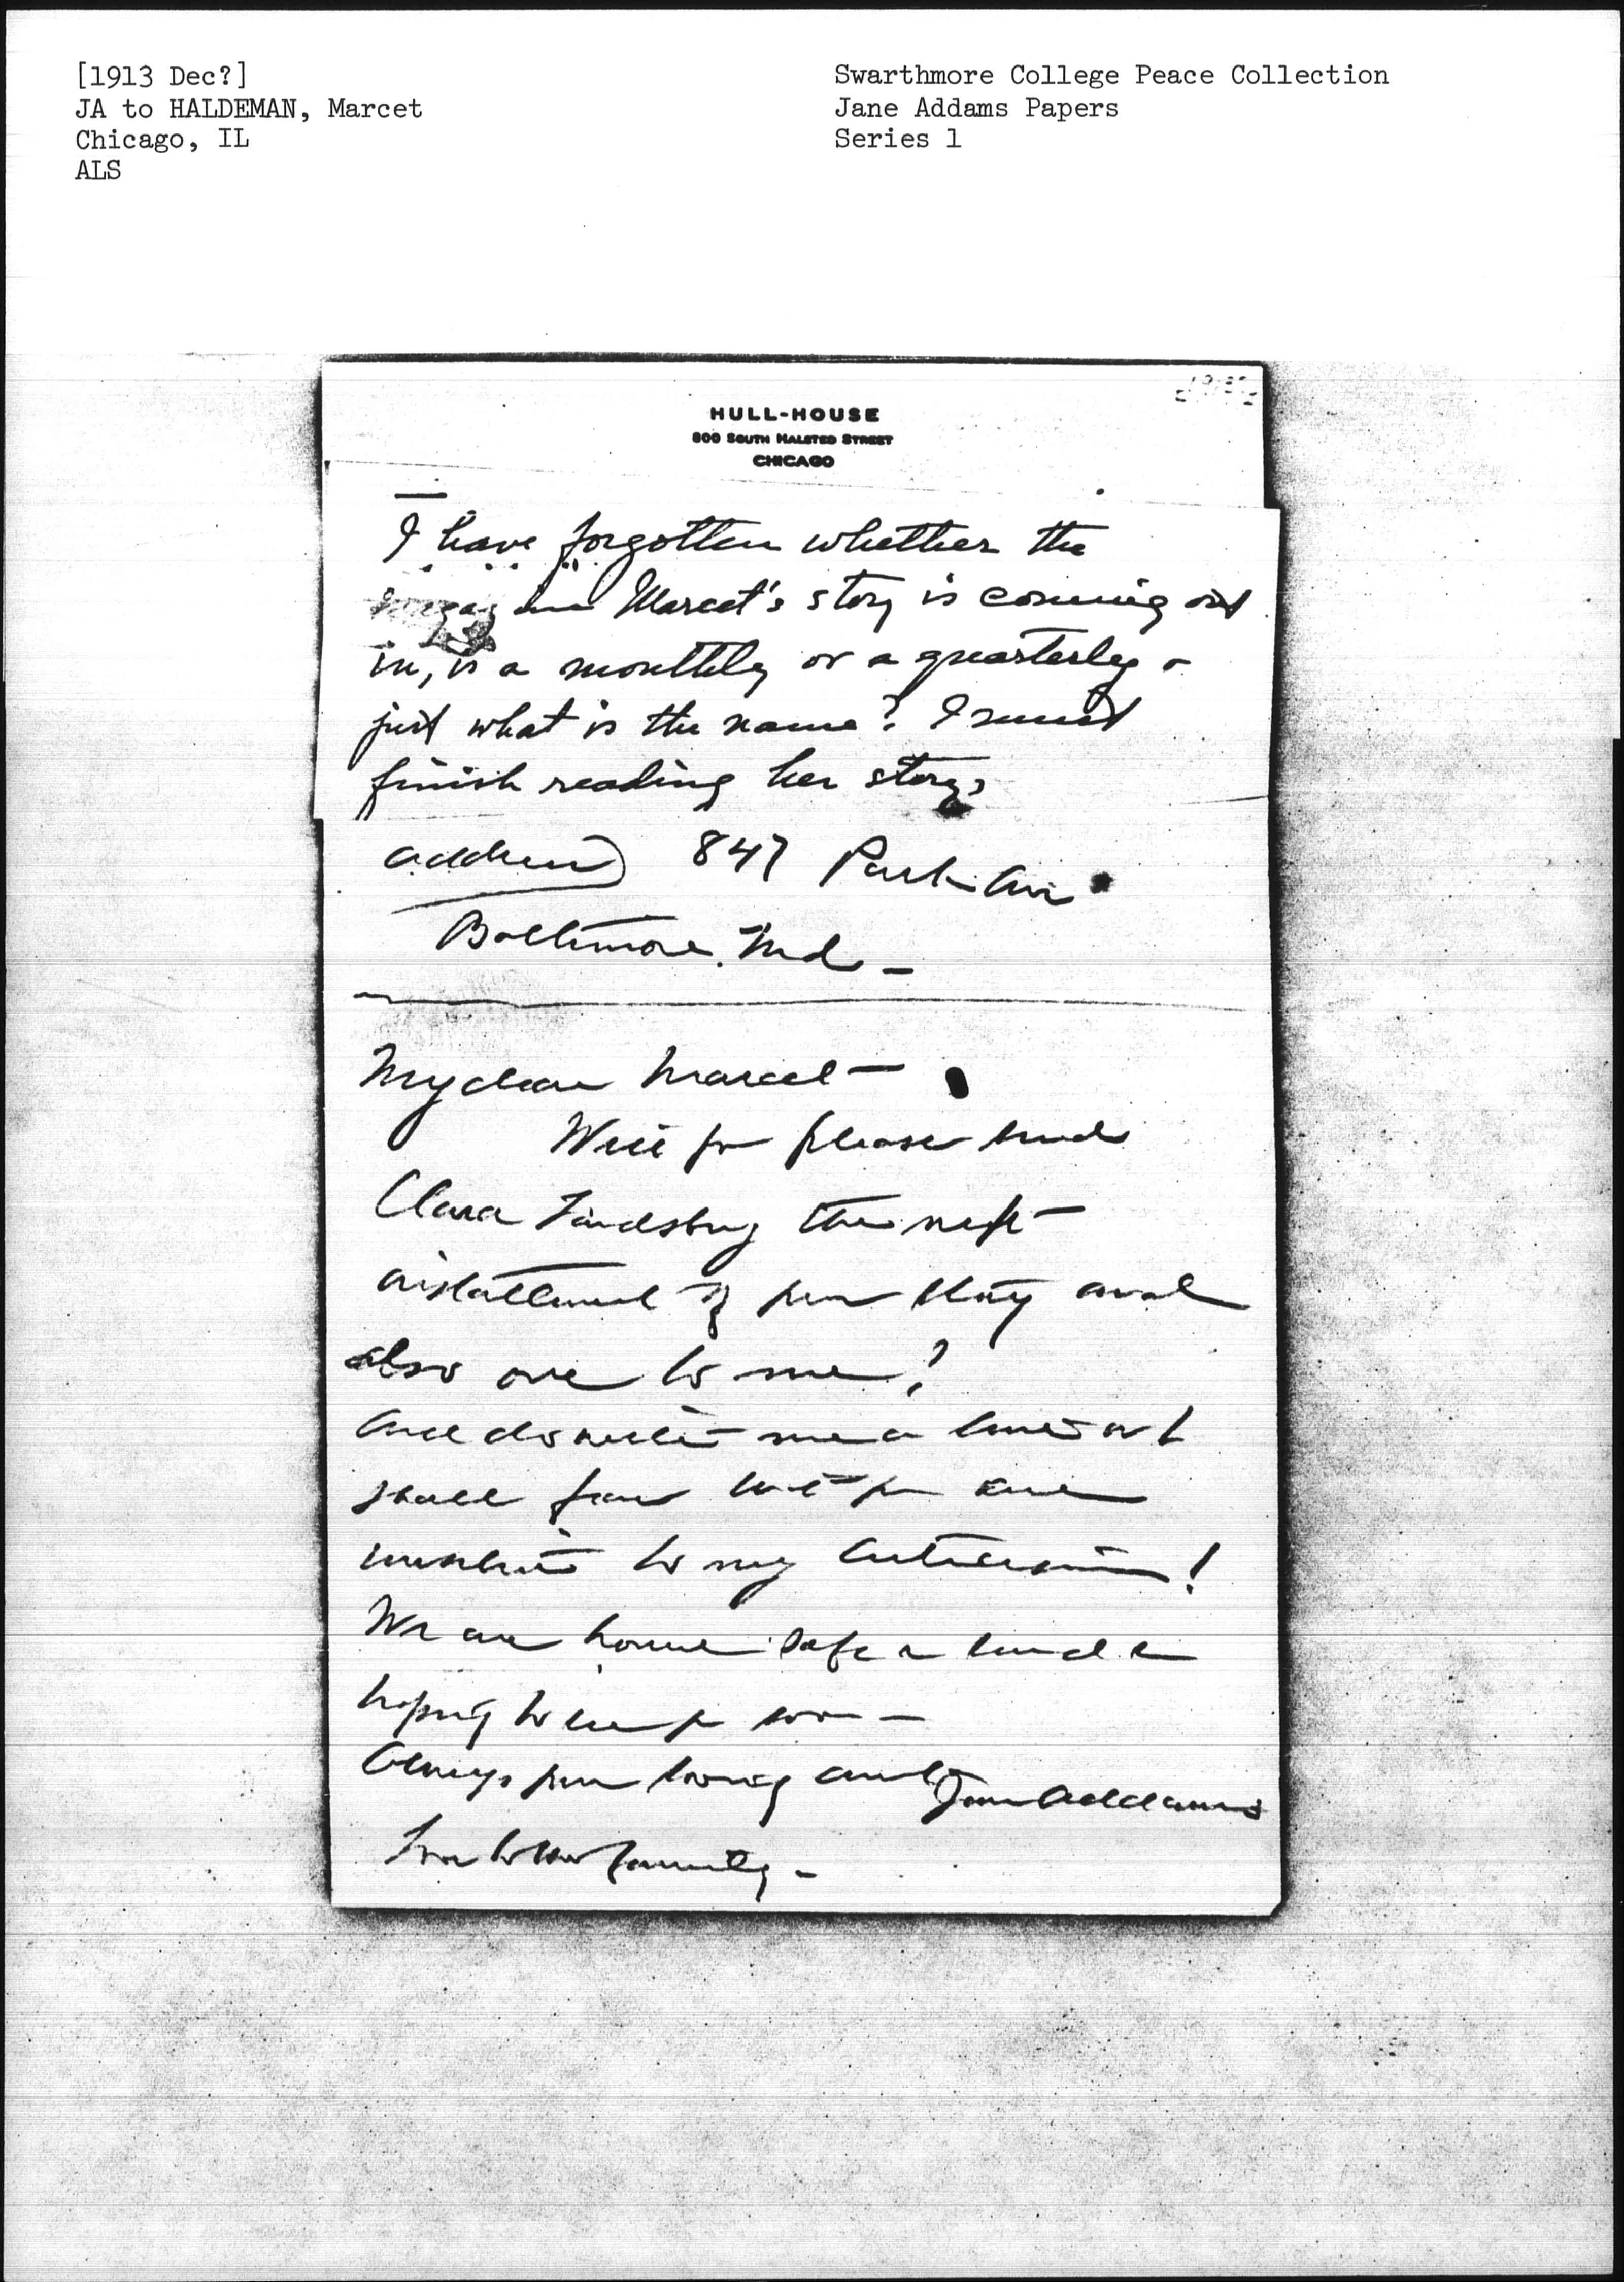 [1913 Dec?]
JA to HALDEMAN, Marcet
Chicago, IL
ALS
Swarthmore College Peace Collection
Jane Addams Papers
Series 1
HULL-HOUSE
800 SOUTH HALSTED STREET
CHICAGO
I have forgotten whether the
magazine Marcet's story is coming out
in, is a monthly or a quarterly &
just what is the name? I must
finish reading her story.
address 847 Park Ave
Baltimore. Md —
My dear Marcet —
Will you please send
Clara Landsberg the next
installment of your story and
also one to me?
And do write me a line or I
shall fear that you are
to my criticism!
We are home safe &
hoping to see you soon —
Always your loving aunt Jane Addams
Love to the family —